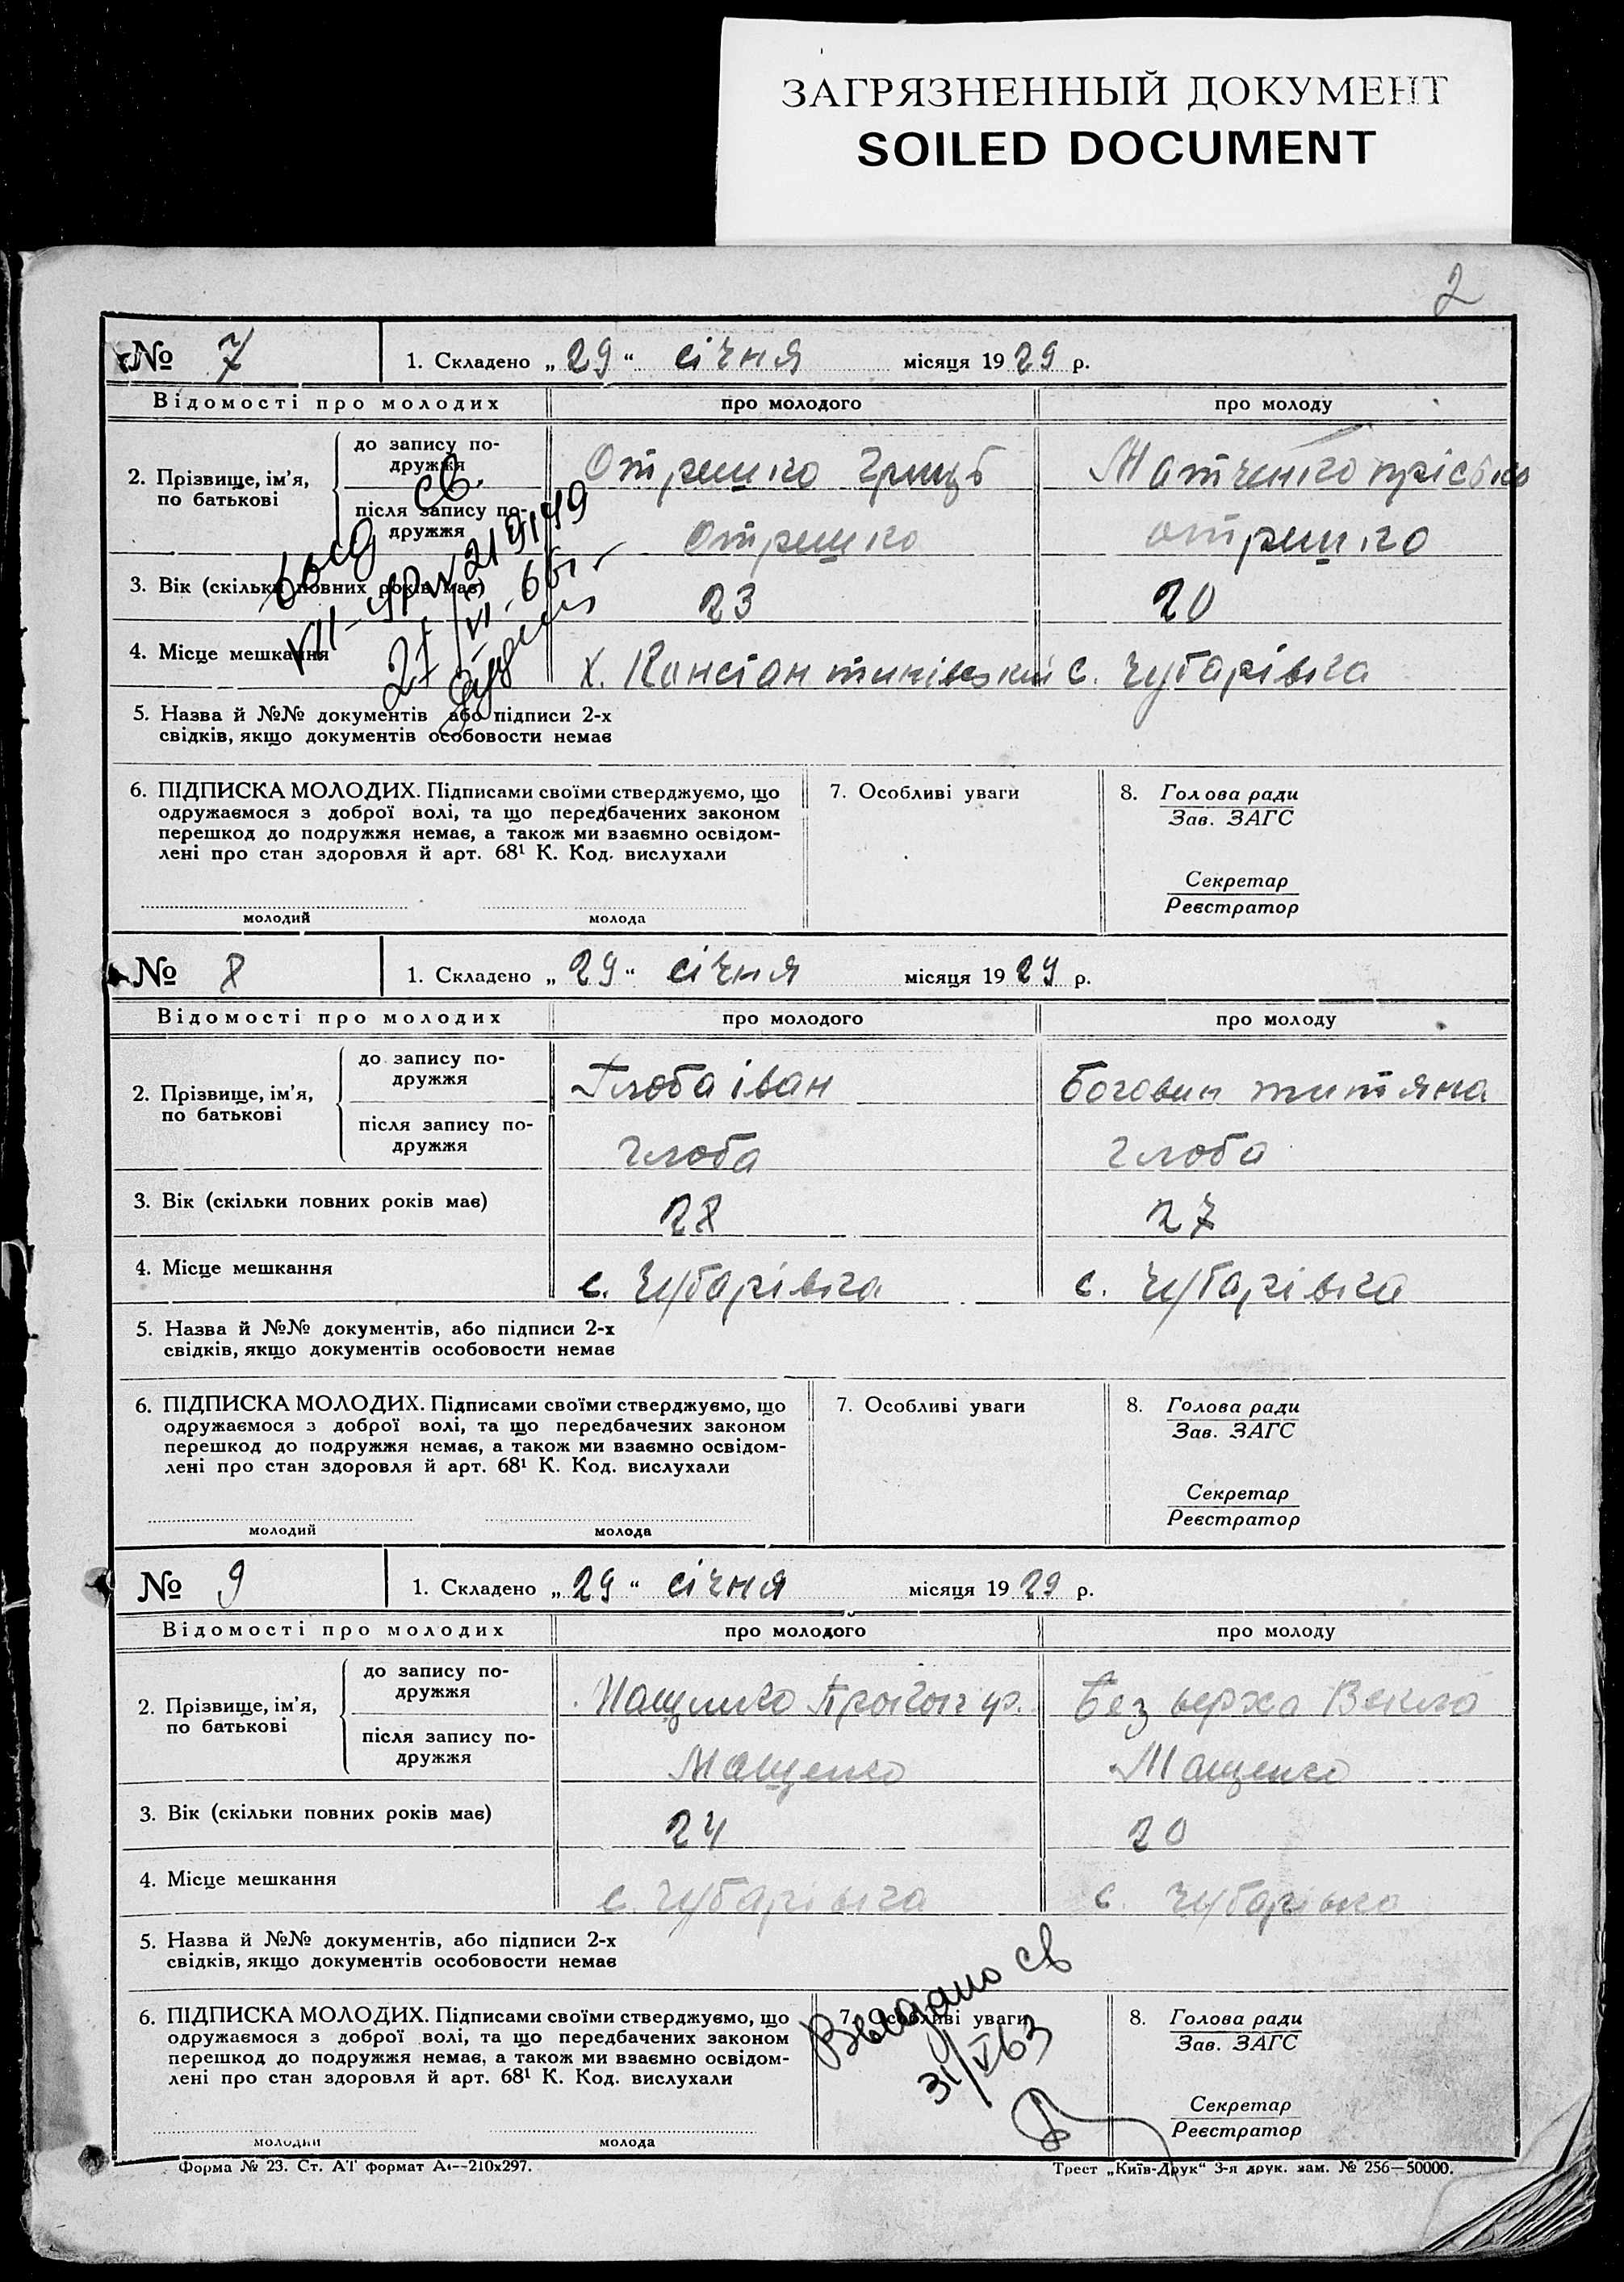 ЗАГРЯЗНЕННЫЙ ДОКУМЕНТ
SOILED DOCUMENT
2
№ 7 1. Складено „29“ січня місяця 1929 р.
Відомості про молодих про молодого про молоду
2. Прізвище, ім’я, по батькові
до запису подружжя Отрешко Грицъ Матченко прісько
після запису подружжя Отрешко отрешко
3. Вік (скільки повних років має) 23 20
4. Місце мешкання х. Констан тинівський с. Чубарівка
5. Назва й №№ документів або підписи 2-х
свідків, якщо документів особовости немає
св.
21/VI-66г.
6. ПІДПИСКА МОЛОДИХ. Підписами своїми стверджуємо, що
одружаємося з доброї волі, та що передбачених законом
перешкод до подружжя немає, а також ми взаємно освідом-
лені про стан здоровля й арт. 68¹ К. Код. вислухали
молодий молода
7. Особливі уваги
8. Голова ради
Зав. ЗАГС
Секретар
Реєстратор
№ 8 1. Складено „29“ січня місяця 1929 р.
Відомості про молодих про молодого про молоду
2. Прізвище, ім’я, по батькові
до запису подружжя Глоба іван Боговин титяна
після запису подружжя Глоба Глоба
3. Вік (скільки повних років має) 28 27
4. Місце мешкання с. Чубарівка с. Чубарівка
5. Назва й №№ документів, або підписи 2-х
свідків, якщо документів особовости немає
6. ПІДПИСКА МОЛОДИХ. Підписами своїми стверджуємо, що
одружаємося з доброї волі, та що передбачених законом
перешкод до подружжя немає, а також ми взаємно освідом-
лені про стан здоровля й арт. 68¹ К. Код. вислухали
молодий молода
7. Особливі уваги
8. Голова ради
Зав. ЗАГС
Секретар
Реєстратор
№ 9 1. Складено „29“ січня місяця 1929 р.
Відомості про молодих про молодого про молоду
2. Прізвище, ім’я, по батькові
до запису подружжя Безверха Векла
після запису подружжя Мащенко Мащенко
3. Вік (скільки повних років має) 24 20
4. Місце мешкання с. Чубарівка с. Чубарівка
5. Назва й №№ документів, або підписи 2-х
свідків, якщо документів особовости немає
6. ПІДПИСКА МОЛОДИХ. Підписами своїми стверджуємо, що
одружаємося з доброї волі, та що передбачених законом
перешкод до подружжя немає, а також ми взаємно освідом-
лені про стан здоровля й арт. 68¹ К. Код. вислухали
молодий молода
7. Особливі уваги
Выдано св
31/V 63
8. Голова ради
Зав. ЗАГС
Секретар
Реєстратор
Форма № 23. Ст. АТ формат А4--210x297. Трест „Київ-Друк“ 3-я друк. зам. № 256—50000.